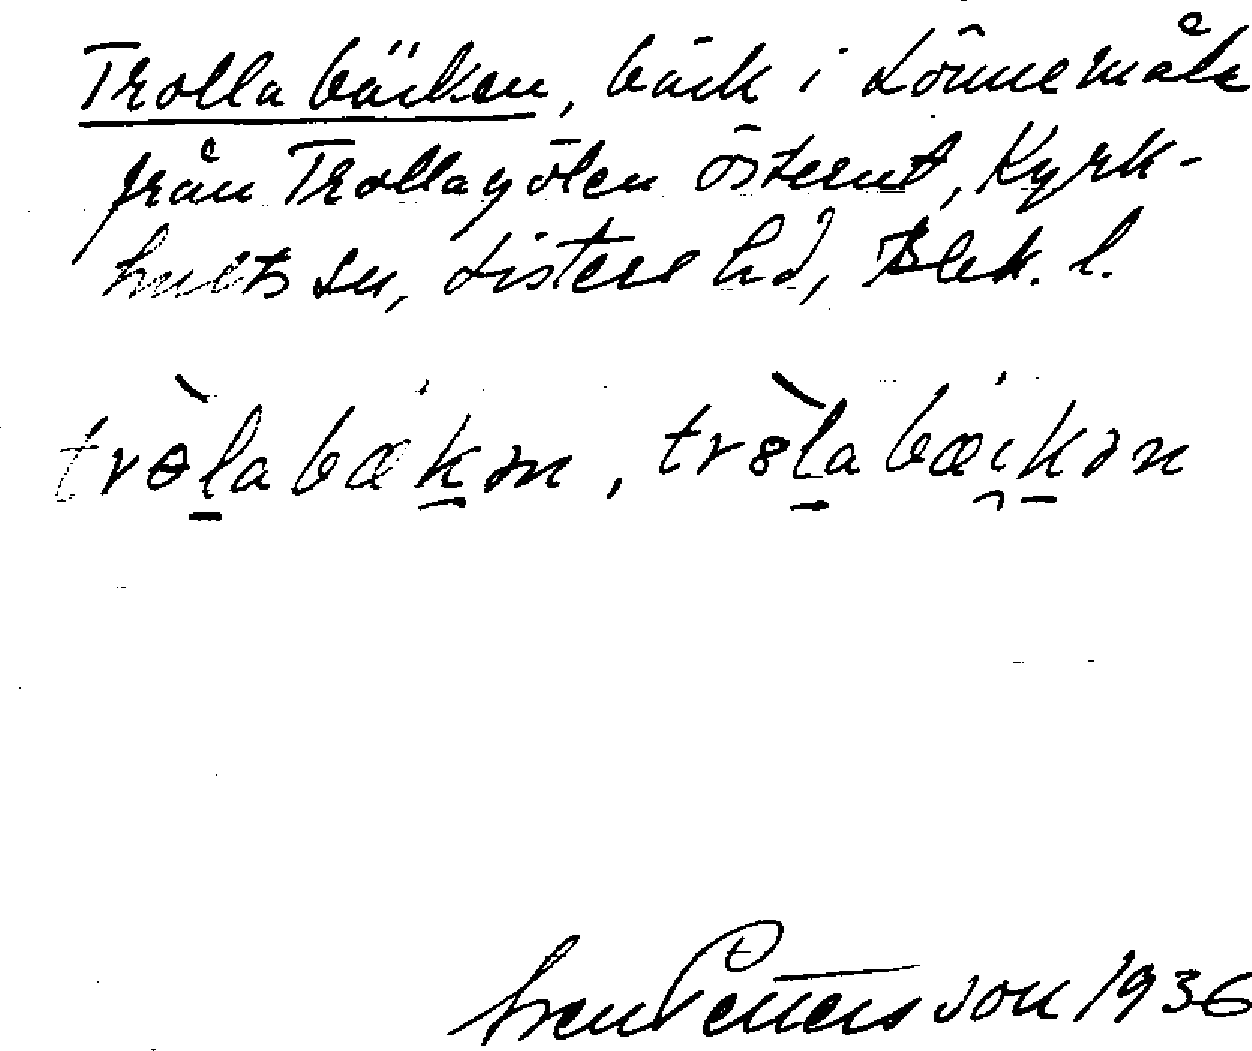 Trollabäcken, bäck i Lönnemåla
från Trollagölen österut, Kyrk-
hults sn, Listers hd, Blek. l.
trɵ̀l̲abæk̲ən, tr8̀l̲abæi̯k̲ən
Sven Pettersson 1936